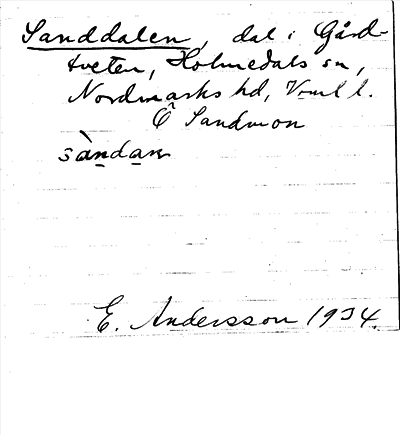 Sanddalen, dal i Gård-
tveten, Holmedals sn,
Nordmarks hd, Vrml l.
Ô Sandmon
sàndan
E. Andersson 1934.